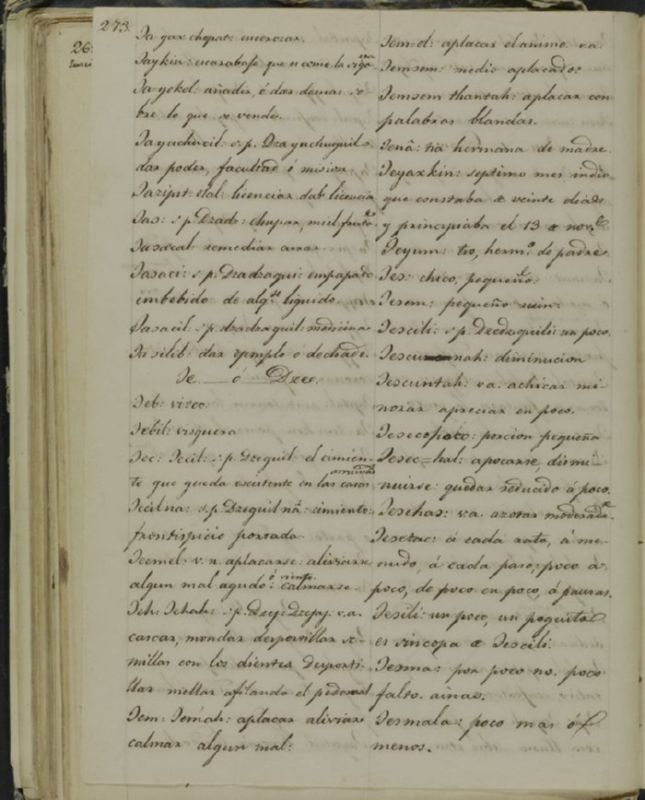 273.
26.
Ja yax chepat: enverezar.
Jaykin: escarabajo que se come la viga
Ja yokol: añadir, ó dar demas so-
bre lo que se vende.
Jayuchucil: s. p. Dzayuchuquil:
dar poder, facultad ó mision.
Jazipit-olal: licenciar dab licencia
Jas: s. p. Dzad: chupar, miel fruta
Jasacal: remediar curar.
Jasaci: s. p. Dzadzaqui: empapado
embebido de algn liquido.
Jasacil: s. p. dzadzaquil: medicina.
Ja silib: dar egemplo ó dechado.
Je — ó Dze.
Jeb: viscoc.
Jebil: visquera
Jec: Jecil: s. p. Dzequil: el cimien-
te que queda escutente en las casas
arruinas
Jecilna: s. p. Dzequil nâ: cimiento
frontispicio portada.
Jecmel: v. n. aplacarse: aliviarse
algun mal agudo: ó viento. calmarse.
Jeh: Jehah: s. p. Dzej: Dzejaj. v. a.
cascar, mondar desportillar se-
millas con los dientes desporti-
llar mellar afilando el pedernal
Jem: Jemah: aplacar aliviar
calmar algun mal:
Jem-ol: aplacar el animo. va.
Jemsem: medio aplacado:
Jemsem thantah: aplacar con
palabras blandas.
Jenâ: tia hermana de madre.
Jeyaxkin: septimo mes indio
que constaba de veinte dias
y principiaba el 13 de nove.
Jeyum: tio, hermo. de padre.
Jes: chico, pequeño.
Jesem: pequeño ruin.
Jescili: s. p. Dzedzquili: un poco.
Jescunah: diminucion
Jescuntah: va. achicar mi-
norar apreciar en poco.
Jesec: porcion pequeña
Jesec=hal: apocarse, dismi-
nuirse: quedar reducido á poco.
Jeschas: v. a. azotar moderade.
Jesezac: á cada rato, á me-
nudo, á cada paso; poco á
poco, de poco en poco, á pausas.
Jesili: un poco, un poquito
es sincopa de Jescili.
Jesma: por poco no. poco
falto. ainas.
Jesmala: poco mas ó
menos.